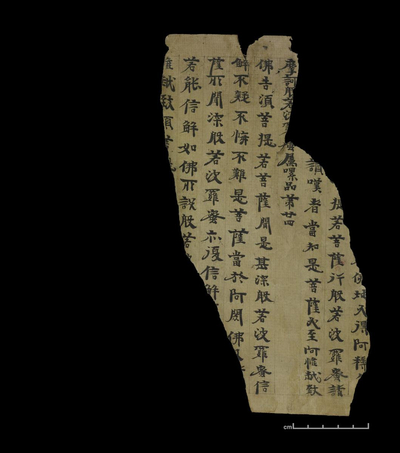 提若菩薩行般若波羅蜜諸
讚嘆者當知是菩薩必至阿惟越致
摩訶般若波 囑累品第廿四
佛告須菩提若菩薩聞是甚深般若波羅蜜信
解不疑不悔不難是菩薩當於阿閦佛
薩所聞深般若波羅蜜亦復信解
若能信解如佛所說般若
惟越致須